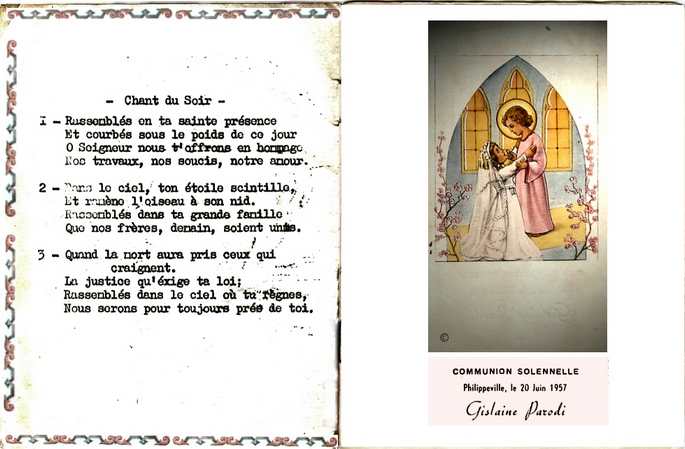 - Chant du Soir -
1 - Rassemblés en ta sainte présence
Et courbés sous le poids de ce jour
O Seigneur nous t'offrons en hommage
Nos travaux, nos soucis, notre amour.
2 - Dans le ciel, ton étoile scintille,
Et ramène l'oiseau à son nid.
Rassemblés dans ta grande famille
Que nos frères, demain, soient unis.
3 - Quand la mort aura pris ceux qui
craignent.
La justice qu'éxige ta loi;
Rassemblés dans le ciel où tu règnes,
Nous serons pour toujours prés de toi.
©
COMMUNION SOLENNELLE
Philippeville, le 20 Juin 1957
Gislaine Parodi